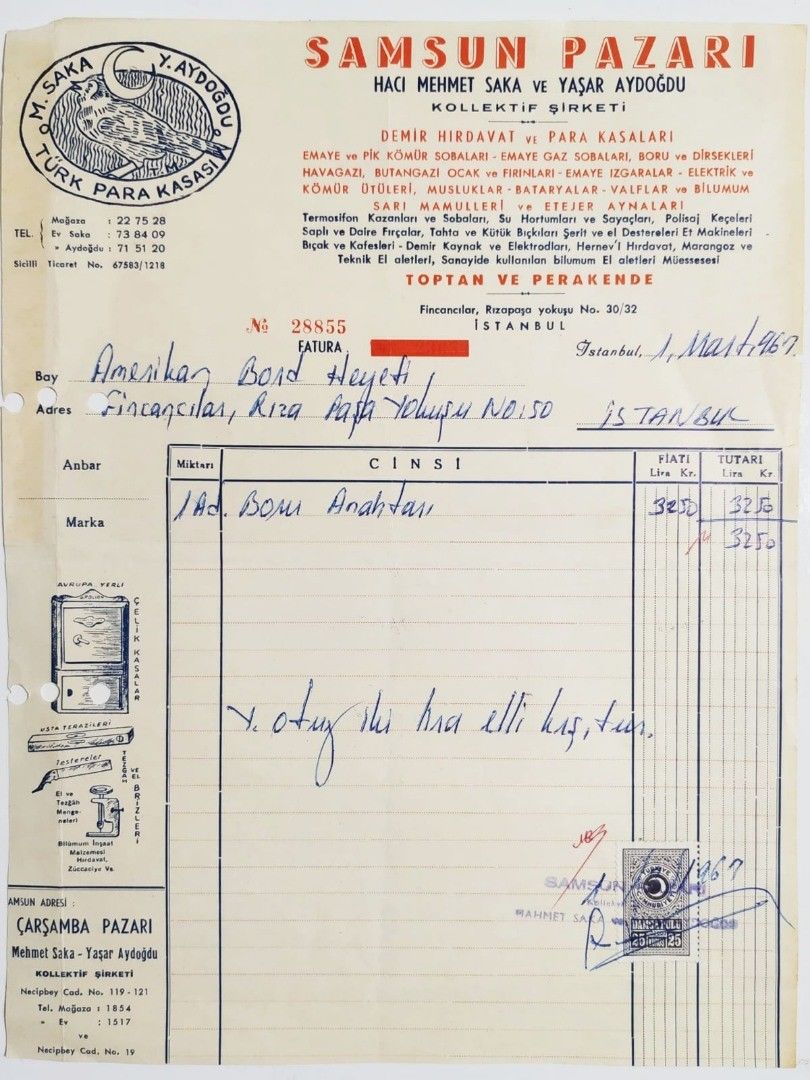 M. SAKA Y. AYDOĞDU
T.M.
TÜRK PARA KASASI
SAMSUN PAZARI
HACI MEHMET SAKA VE YAŞAR AYDOĞDU
KOLLEKTİF ŞİRKETİ
DEMİR HIRDAVAT VE PARA KASALARI
EMAYE ve PİK KÖMÜR SOBALARI - EMAYE GAZ SOBALARI, BORU ve DİRSEKLERİ
HAVAGAZI, BUTANGAZI OCAK ve FIRINLARI - EMAYE IZGARALAR - ELEKTRİK ve
KÖMÜR ÜTÜLERİ, MUSLUKLAR - BATARYALAR - VALFLAR ve BİLUMUM
SARI MAMULLERİ ve ETEJER AYNALARI
Termosifon Kazanları ve Sobaları, Su Hortumları ve Sayaçları, Polisaj Keçeleri
Saplı ve Daire Fırçalar, Tahta ve Kütük Bıçkıları Şerit ve el Destereleri Et Makineleri
Bıçak ve Kafesleri - Demir Kaynak ve Elektrodları, Hernev'I Hırdavat, Marangoz ve
Teknik El aletleri, Sanayide kullanılan bilumum El aletleri Müessesesi
TOPTAN VE PERAKENDE
TEL.
Mağaza : 22 75 28
Ev Saka : 73 84 09
» Aydoğdu : 71 51 20
Sicilli Ticaret No. 67583/1218
Fincancılar, Rızapaşa yokuşu No. 30/32
İSTANBUL
No 28855
FATURA
İstanbul, 1, Mart, 967.
Bay Amerikan Bord Heyeti,
Adres Fincancılar, Rıza Paşa Yokuşu No:50 İSTANBUL
Anbar
Marka
Miktarı CİNSİ FİATI TUTARI
Lira Kr. Lira Kr.
1 Ad. Boru Anahtarı 32 50 32 50
32 50
Y. otuz iki lira elli krş, tur.
AVRUPA YERLİ
ÇELİK KASALAR
USTA TERAZİLERİ
Testereler
TEZGAH VE EL BRİZLERİ
El ve
Tezgâh
Menge-
neleri
Bilûmum İnşaat
Malzemesi
Hırdavat,
Züccaciye Vs.
SAMSUN PAZARI
MAHMET SAKA ve YAŞAR AYDOĞDU
1 967
DAMGA PULU
25 KURUŞ 25
AMSUN ADRESİ :
ÇARŞAMBA PAZARI
Mehmet Saka - Yaşar Aydoğdu
KOLLEKTİF ŞİRKETİ
Necipbey Cad. No. 119 - 121
Tel. Mağaza : 1854
» Ev : 1517
ve
Necipbey Cad. No. 19